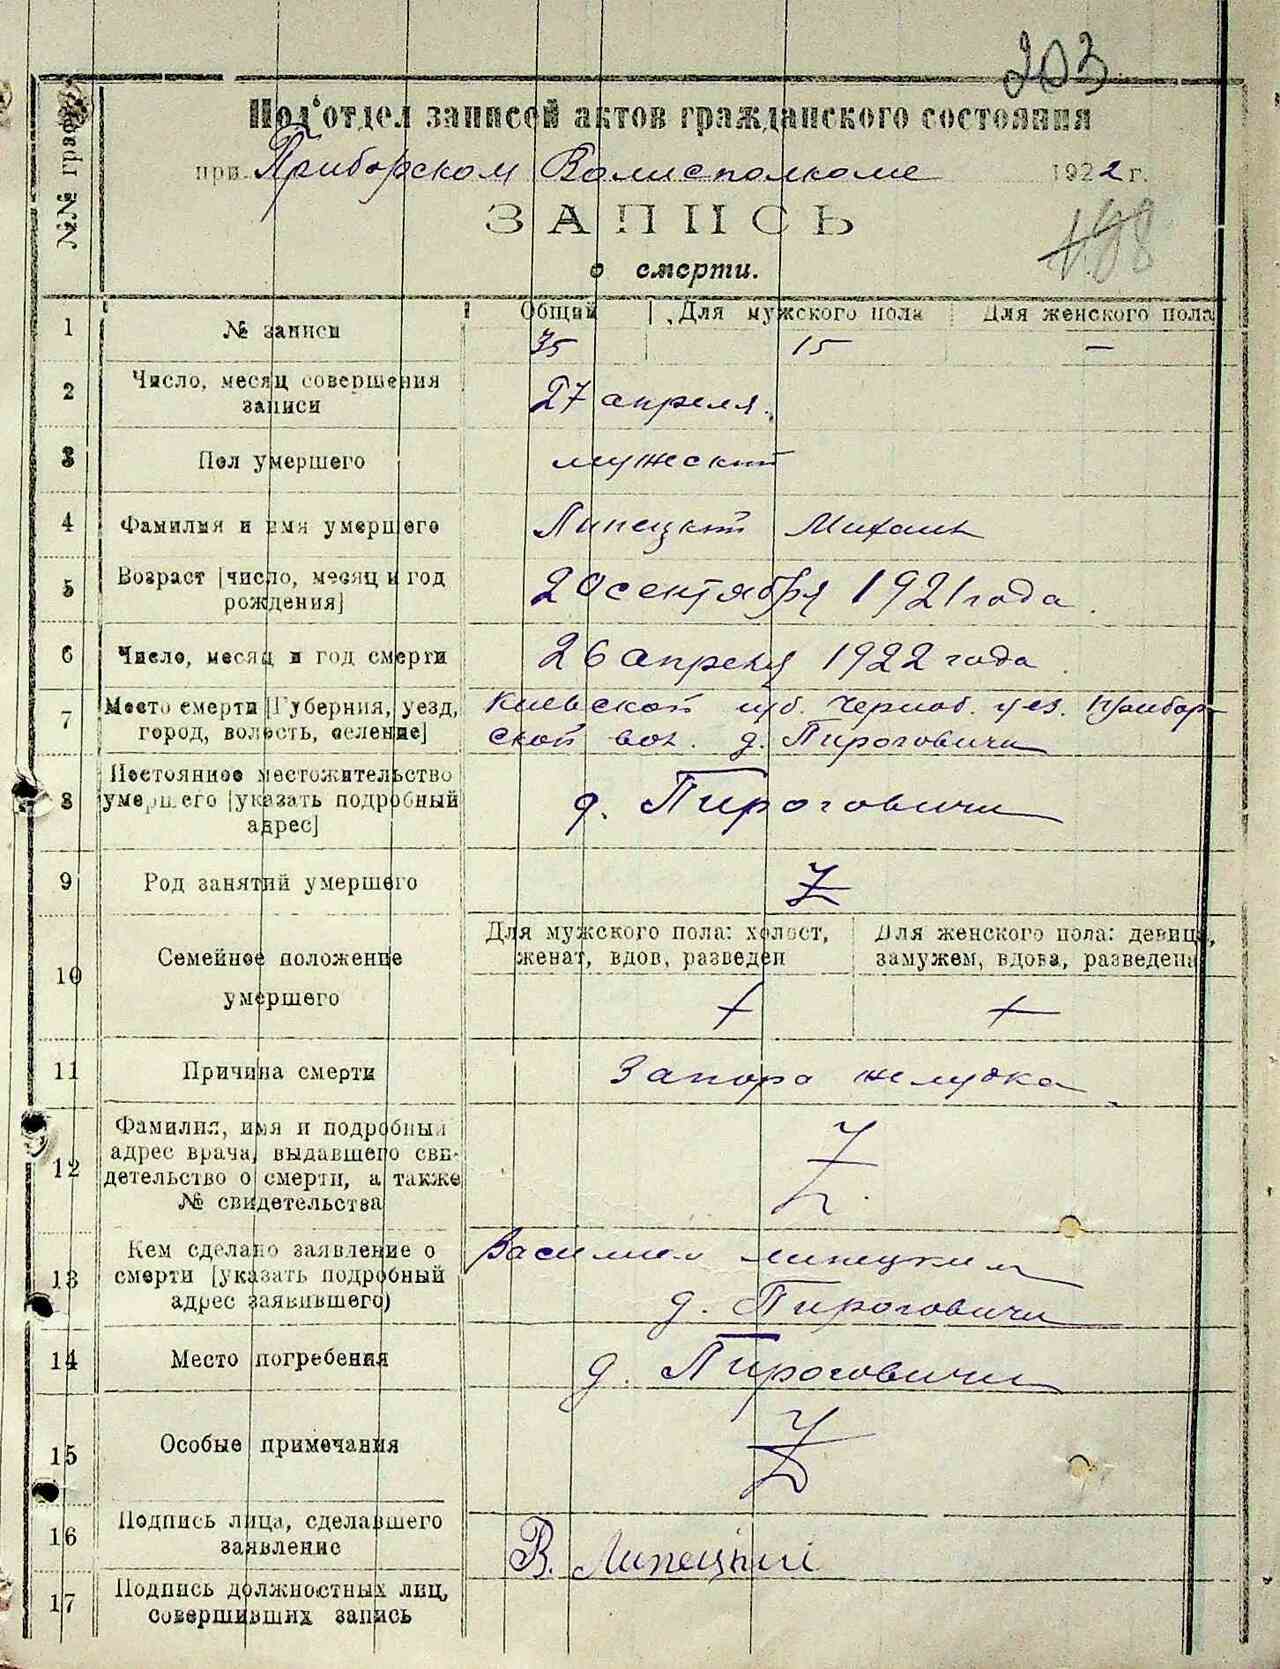 203
Под'отдел записей актов гражданского состояния
при Приборском Волисполкоме 1922 г.
ЗАПИСЬ
о смерти.
№№ граф
1 № записи Общий Для мужского пола Для женского пола
35 15 —
2 Число, месяц совершения записи 27 апреля.
3 Пол умершего мужский
4 Фамилия и имя умершего Липецкий Михаил
5 Возраст [число, месяц и год рождения] 20 сентября 1921 года.
6 Число, месяц и год смерти 26 апреля 1922 года.
7 Место смерти [Губерния, уезд, город, волость, селение] Киевской губ. Черноб. уез. Прибор-
ской вол. д. Пироговичи
8 Постоянное местожительство умершего [указать подробный адрес] д. Пироговичи
9 Род занятий умершего
10 Семейное положение умершего Для мужского пола: холост, женат, вдов, разведен Для женского пола: девица, замужем, вдова, разведена
11 Причина смерти Запора желудка
12 Фамилия, имя и подробный адрес врача, выдавшего свидетельство о смерти, а также № свидетельства
13 Кем сделано заявление о смерти [указать подробный адрес заявившего) Василием Липецким
д. Пироговичи
14 Место погребения д. Пироговичи
15 Особые примечания
16 Подпись лица, сделавшего заявление В. Липецкий
17 Подпись должностных лиц, совершивших запись